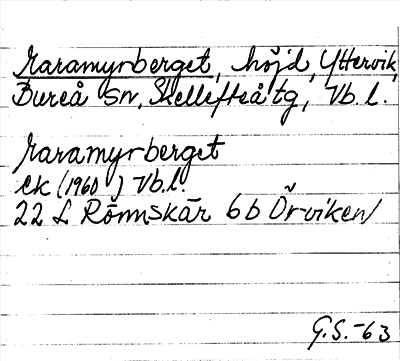 Raramyrberget, höjd, Yttervik,
Bureå sn, Skellefteå tg, Vb. l.
Raramyrberget
ek (1960 ) Vb. l.
22 L Rönnskär 6b Örviken
G.S.-63